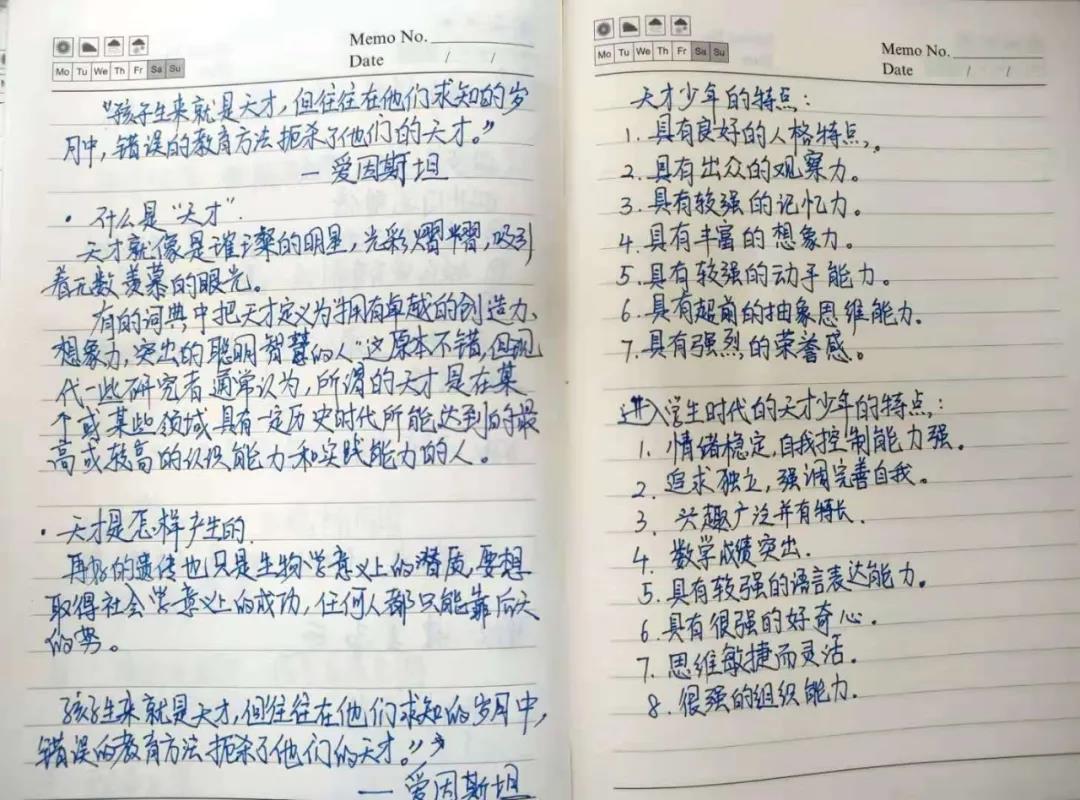 Memo No.
Mo Tu We Th Fr Sa Su
Date / /
"孩子生来就是天才,但往往在他们求知的岁
月中,错误的教育方法扼杀了他们的天才。"
— 爱因斯坦
· 什么是"天才".
天才就像是璀璨的明星,光彩熠熠,吸引
着无数羡慕的眼光。
有的词典中把天才定义为"拥有卓越的创造力、
想象力,突出的聪明智慧的人"这原本不错,但现
代一些研究者通常认为,所谓的天才是在某
个或某些领域具有一定历史时代所能达到的最
高或较高的认识能力和实践能力的人。
· 天才是怎样产生的.
再好的遗传也只是生物学意义上的潜质,要想
取得社会学意义上的成功,任何人都只能靠后天
的努。
孩子生来就是天才,但往往在他们求知的岁月中,
错误的教育方法扼杀了他们的天才。"
— 爱因斯坦
Memo No.
Mo Tu We Th Fr Sa Su
Date / /
天才少年的特点:
1. 具有良好的人格特点,。
2. 具有出众的观察力。
3. 具有较强的记忆力。
4. 具有丰富的想象力。
5. 具有较强的动手能力。
6. 具有超前的抽象思维能力.
7. 具有强烈的荣誉感。
进入学生时代的天才少年的特点:
1. 情绪稳定,自我控制能力强。
2. 追求独立,强调完善自我。
3. 兴趣广泛并有特长.
4. 数学成绩突出.
5. 具有较强的语言表达能力。
6. 具有很强的好奇心.
7. 思维敏捷而灵活.
8. 很强的组织能力.